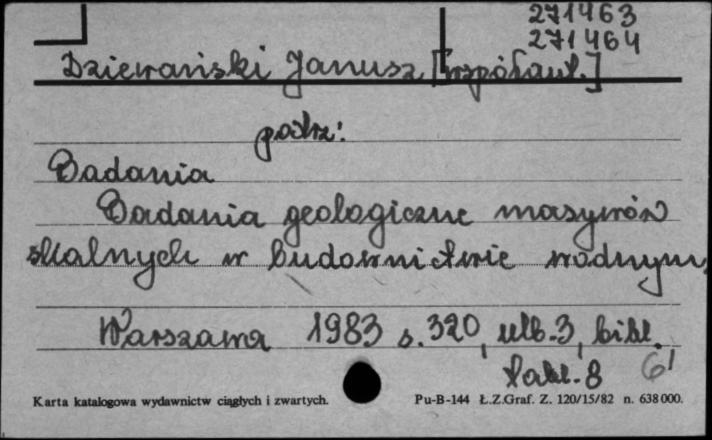 271463
271464
Dziewański Janusz [współaut.]
patrz:
Badania
Badania geologiczne masywów
skalnych w budownictwie wodnym.
Warszawa 1983 s. 320, nlb. 3, bibl.
tabl. 8
61
Karta katalogowa wydawnictw ciągłych i zwartych.
Pu-B-144 Ł.Z.Graf. Z. 120/15/82 n. 638 000.